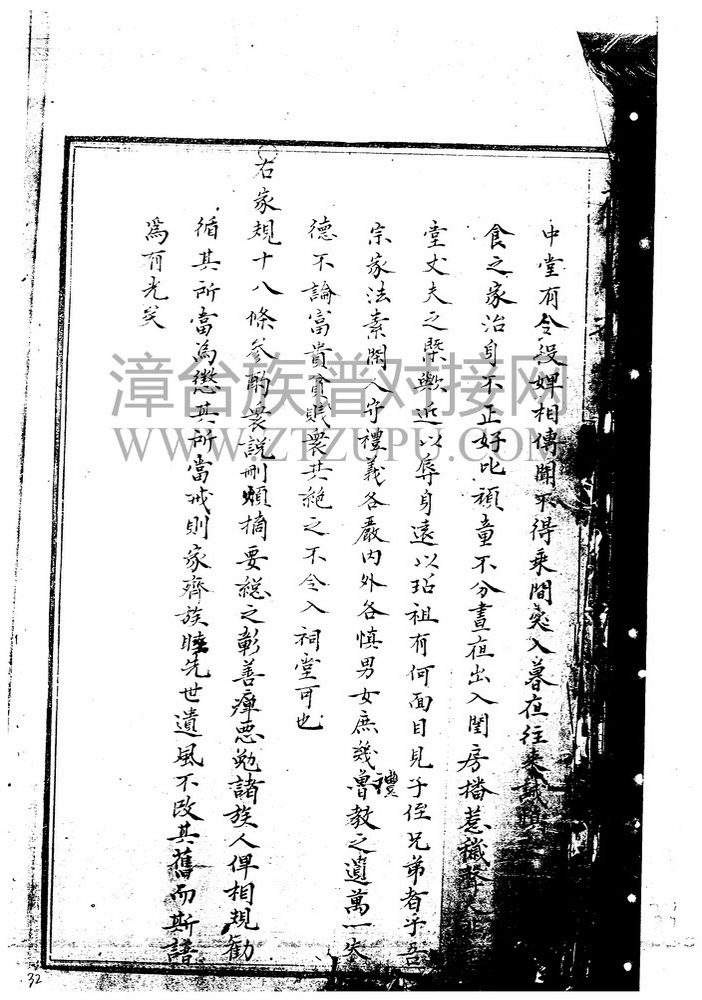 中堂有令役婢相傳聞不得乘間突入暮夜往來試
食之家治身不正好比頑童不分晝夜出入閨房播惹穢聲
堂丈夫之槩歟近以辱身遠以玷祖有何面目見子侄兄弟者乎吾
宗家法素閑人守禮義各嚴內外各慎男女庶幾魯禮教之遺萬一失
德不論富貴貧賤衆共絶之不令入祠堂可也
右家規十八條參酌衆說刪煩摘要總之彰善癉惡勉諸族人俾相規勸
循其所當為懲其所當戒則家齊族睦先世遺風不改其舊而斯譜
為有光矣
漳台族谱对接网
WWW.ZTZUPU.COM
32